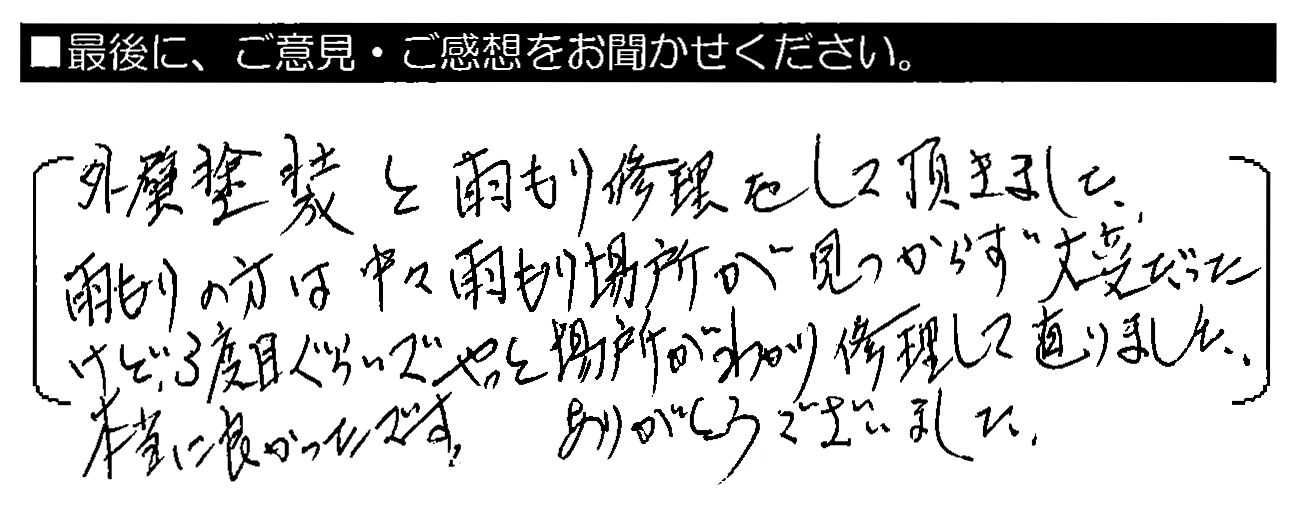 ■最後に、ご意見・ご感想をお聞かせください。
外壁塗装と雨もり修理をして頂きました。
雨もりの方は中々雨もり場所が見つからず大変だった
けど、3度目ぐらいでやっと場所がわかり修理して直りました。
本当に良かったです。 ありがとうございました。